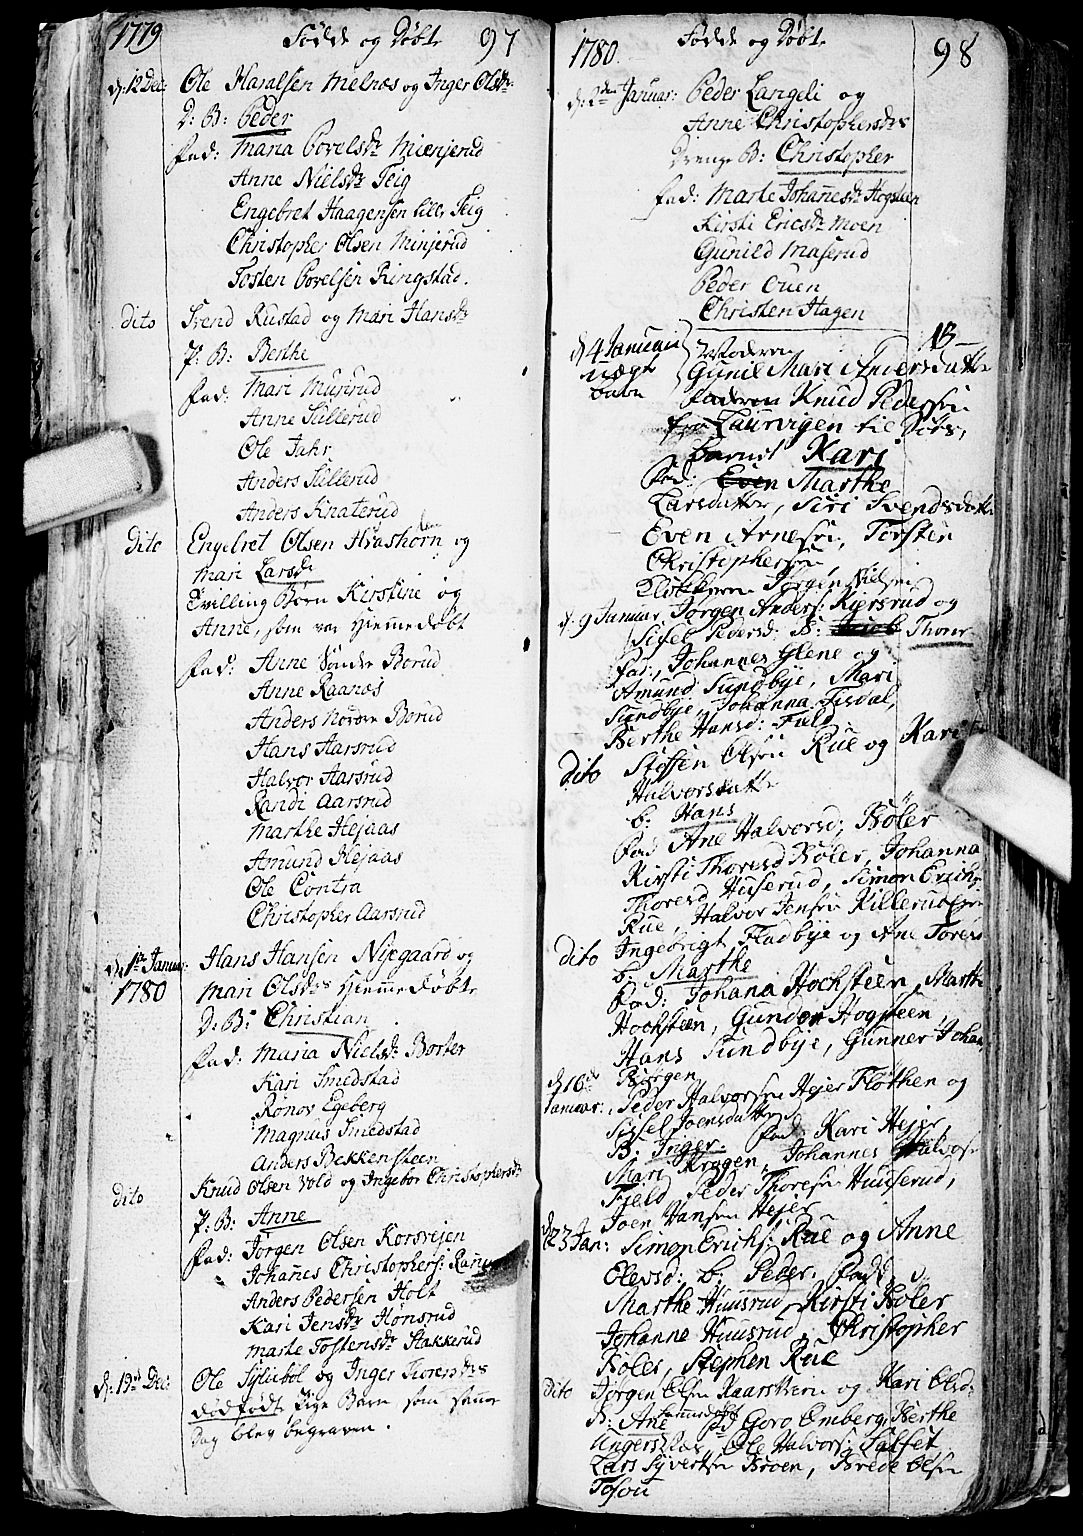 1779 Födde og Döbte 97
d: 12 Dec: Ole Haralsen Melnæs og Inger Olsdr:
D: B: Peder
fad: Maria Povelsdr Minjerud
Anne Nielsdr Teig
Engebret Haagensen lille Teig
Christopher Olsen Minjerud
Tosten Povelsen Ringstad.
dito Svend Rustad og Mari Hansdr
P: B: Berthe
fad: Mari Musirud
Anne Sillerud
Ole Jahr
Anders Sillerud
Anders Knaterud
dito Engebret Olsen Hvashorn og
Mari Larsdr
Tvilling Børn Kirstine og
Anne, som var hjemme døbt
fad: Anne Sønder Borud
Anne Raanæs
Anders Norden Borud
Hans Aarsrud
Halvor Aarsrud
Randi Aarsrud
Marthe Hejaas
Amund Hejaas
Ole Contra
Christopher Aarsrud
d: 1te Januar: Hans Hansen Nipgaard og
1780 Mari Olsdr hjemme døbte
D: B: Christian
fad: Maria Nielsdr Borter
Kari Smedstad
Rønov Egeberg
Magnus Smedstad
Anders Bekkensteen
dito Knud Olsen Vold og Ingebor Christophersdr
P: B: Anne
fad: Jörgen Olsen Korsvejen
Johañes Christophers:
Anders Pedersen Holt
Kari Jensdr Hønsrud
Marte Tostensdr Stakkerud
d: 19de Dec: Ole Sÿliebøl og Inger Toresdr
dødfødt Pige Barn som samme
Dag blev begraven.
1780. Födde og Döbte 98
d: 2den Januar: Peder Langeli og
Anne Christophersdr
Drenge B: Christopher
fad: Marte Johañesdr Hogsteen
Kirsti Ericsdr Moen
Gunild Maserud
Peder Ouen
Christen Hagen
d 4 Januarii Moderen NB
uægte Gunil Mari Andersdatter
barn faderen Knud Pedersen
fra Laurvigen til Søes,
barnet Kari
fad: Even Marthe
Larsdatter, Siri Svendsdatter
Even Arnesen, Torsten
Christophersen
Klokkeren Jørgen Nielsen
d: 9 Januar Jørgen Anders: Kiersrud og
Sisel Pedersd: B: Jacob Thorer
fad: Johannes Glene og
Amund Sundbÿe, Mari
Sundbÿe, Johanna Fisdal,
Berthe Hansd: Fald
dito Steffen Olsen Rue og Kari
Halvorsdatter
b: Hans
fad Ane Halvorsd: Bøler
Kirsti Thoresd Bøler, Johanna
Thoresd Huserud, Simon Erichs
Rue, Halvor Jensen Killerud
dito Ingebrigt Fladbÿe og Ane Toresd
b: Marthe
fad: Johana Hochsteen, Marthe
Hochsteen, Gunder Hogsteen,
Hans Sundbÿe, Gunner Johan
Biørgen
d 16de
Januar: Peder Halvorsen Hejer Fløthen og
Sissel Joensdatter
B: Inger fad: Kari Hejer
Mari Krogen, Johannes Halvors
Fjeld, Peder Thoresen Huuserud,
Joen Hansen Hejer
d 23 Jan: Simon Erichs: Rue og Anne
Olevsd: b: Peder. fad:
Marthe Huusrud, Kirsti Bøler
Johanne Huusrud, Christopher
Bøler, Stephen Rue
dito Jörgen Olsen Kaarstveen og Kari Olsd:
B: Ane fad: Goro Emberg, Berthe
Ole Halvors: Salset
Lars Syvertsen Broen, Brede Olsen
Tosou